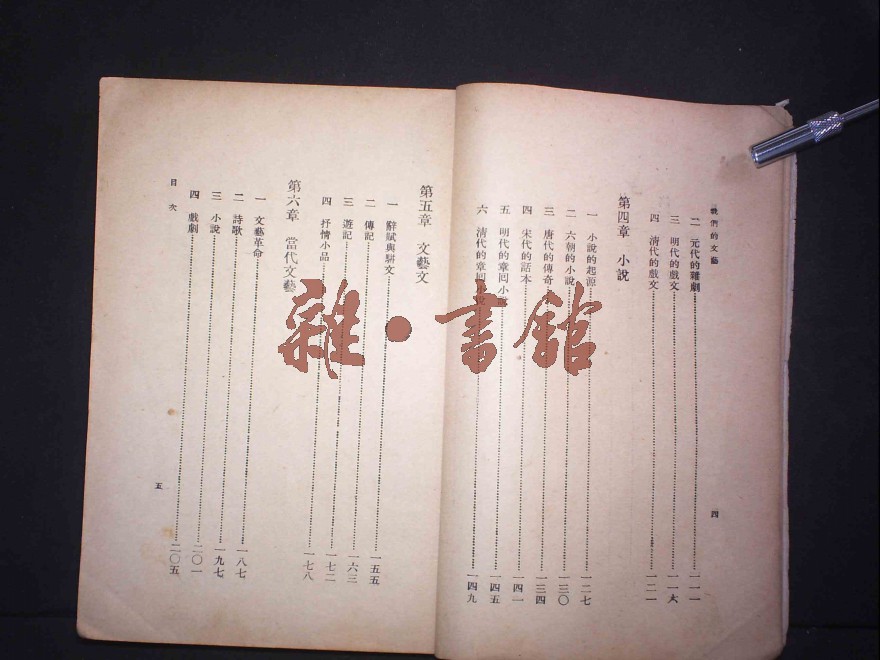 我們的文藝
二 元代的雜劇……一一一
三 明代的戲文……一一六
四 清代的戲文……一二一
第四章 小說
一 小說的起源……一二七
二 六朝的小說……一三〇
三 唐代的傳奇……一三四
四 宋代的話本……一四一
五 明代的章回小說……一四五
六 清代的章回小說……一四九
四
第五章 文藝文
一 辭賦與駢文……一五五
二 傳記……一六三
三 遊記……一七二
四 抒情小品……一七八
第六章 當代文藝
一 文藝革命……一八七
二 詩歌……一九七
三 小說……二〇一
四 戲劇……二〇五
目次
五
雜·書館